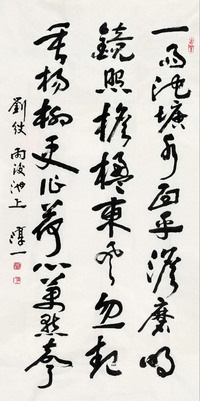 一雨池塘水面平淡磨明
鏡照檐楹東風忽起
垂楊柳更作荷心萬點聲
劉攽 雨後池上 淳一